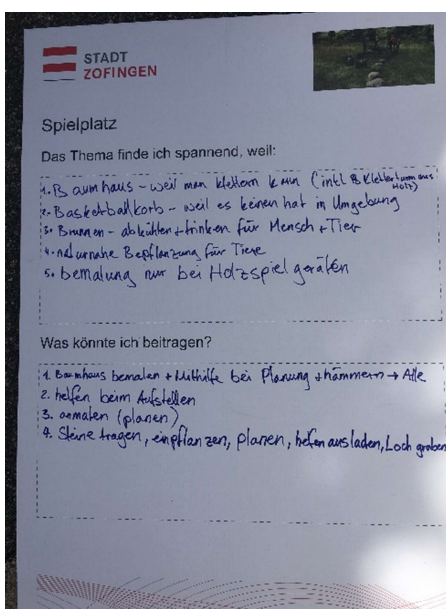 STADT
ZOFINGEN
Spielplatz
Das Thema finde ich spannend, weil:
1. Baumhaus - weil man klettern kann (inkl Kletterturm aus
Holz)
2. Basketballkorb - weil es keinen hat in Umgebung
3. Brunnen - abkühlen + trinken für Mensch + Tier
4. naturnahe Bepflanzung für Tiere
5. bemalung nur bei Holzspielgeräten
Was könnte ich beitragen?
1. Baumhaus bemalen + Mithilfe bei Planung + hämmern → Alle
2. helfen beim Aufstellen
3. anmalen (planen)
4. Steine tragen, einpflanzen, planen, helfen ausladen, Loch graben